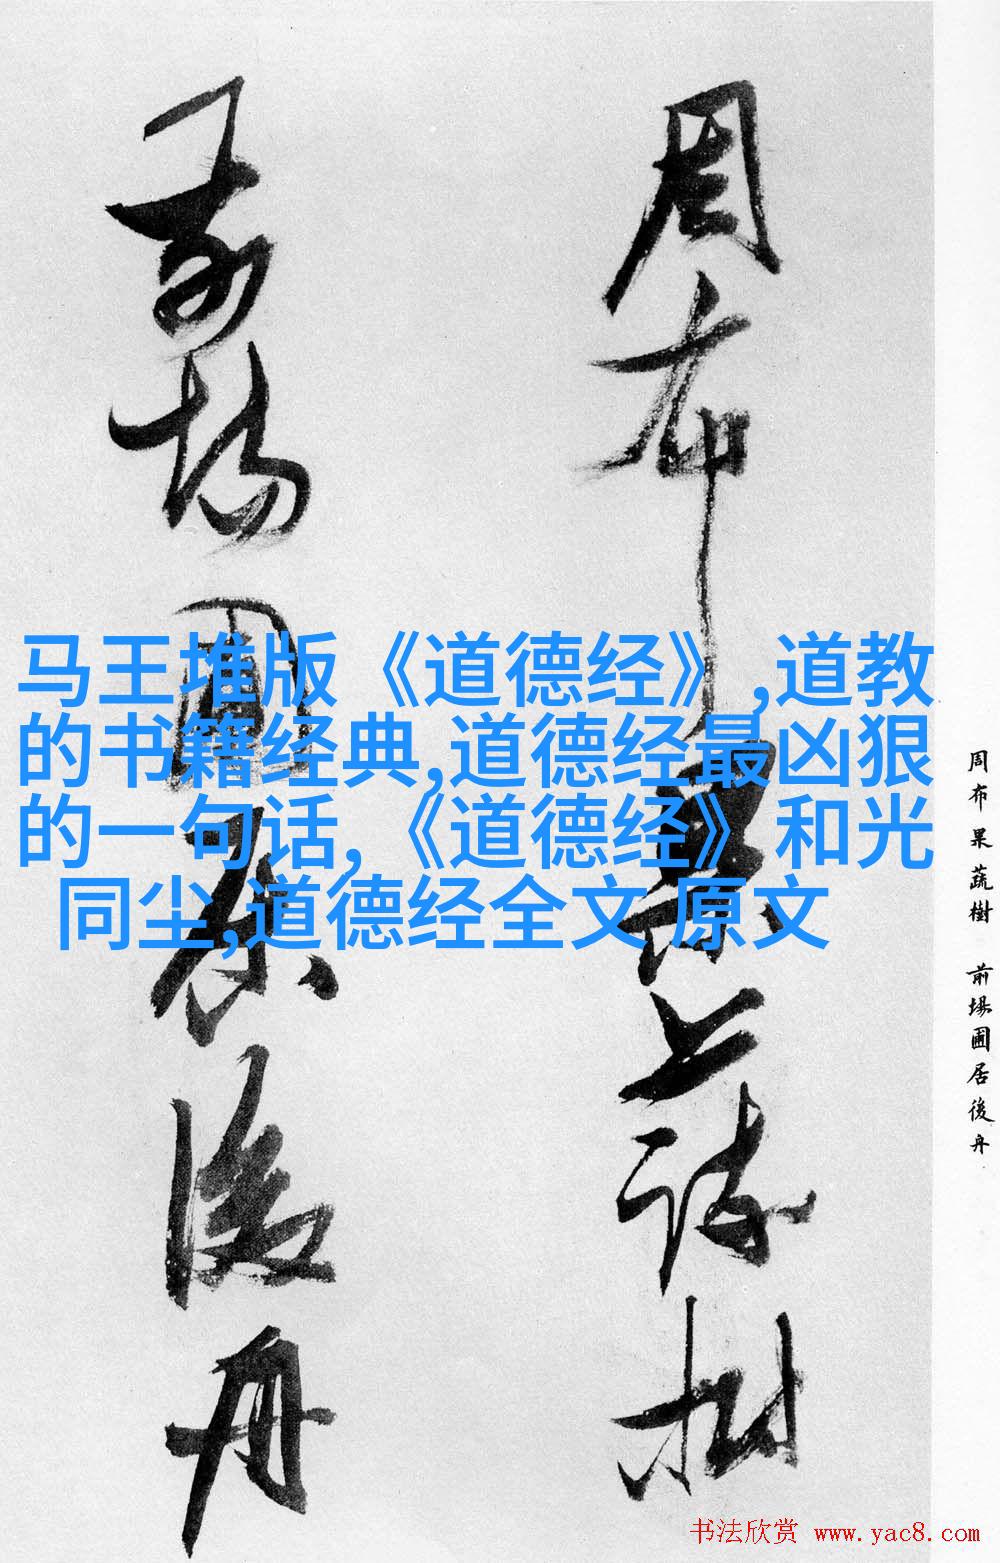 周布果蔬樹
前場圃居後舟
马王堆版《道德经》,道教
的书籍经典,道德经最凶狠
的一句话,《道德经》和光
同尘,道德经全文 原文
周布果蔬樹 前場圃居後舟
书法欣赏 www.yac8.com